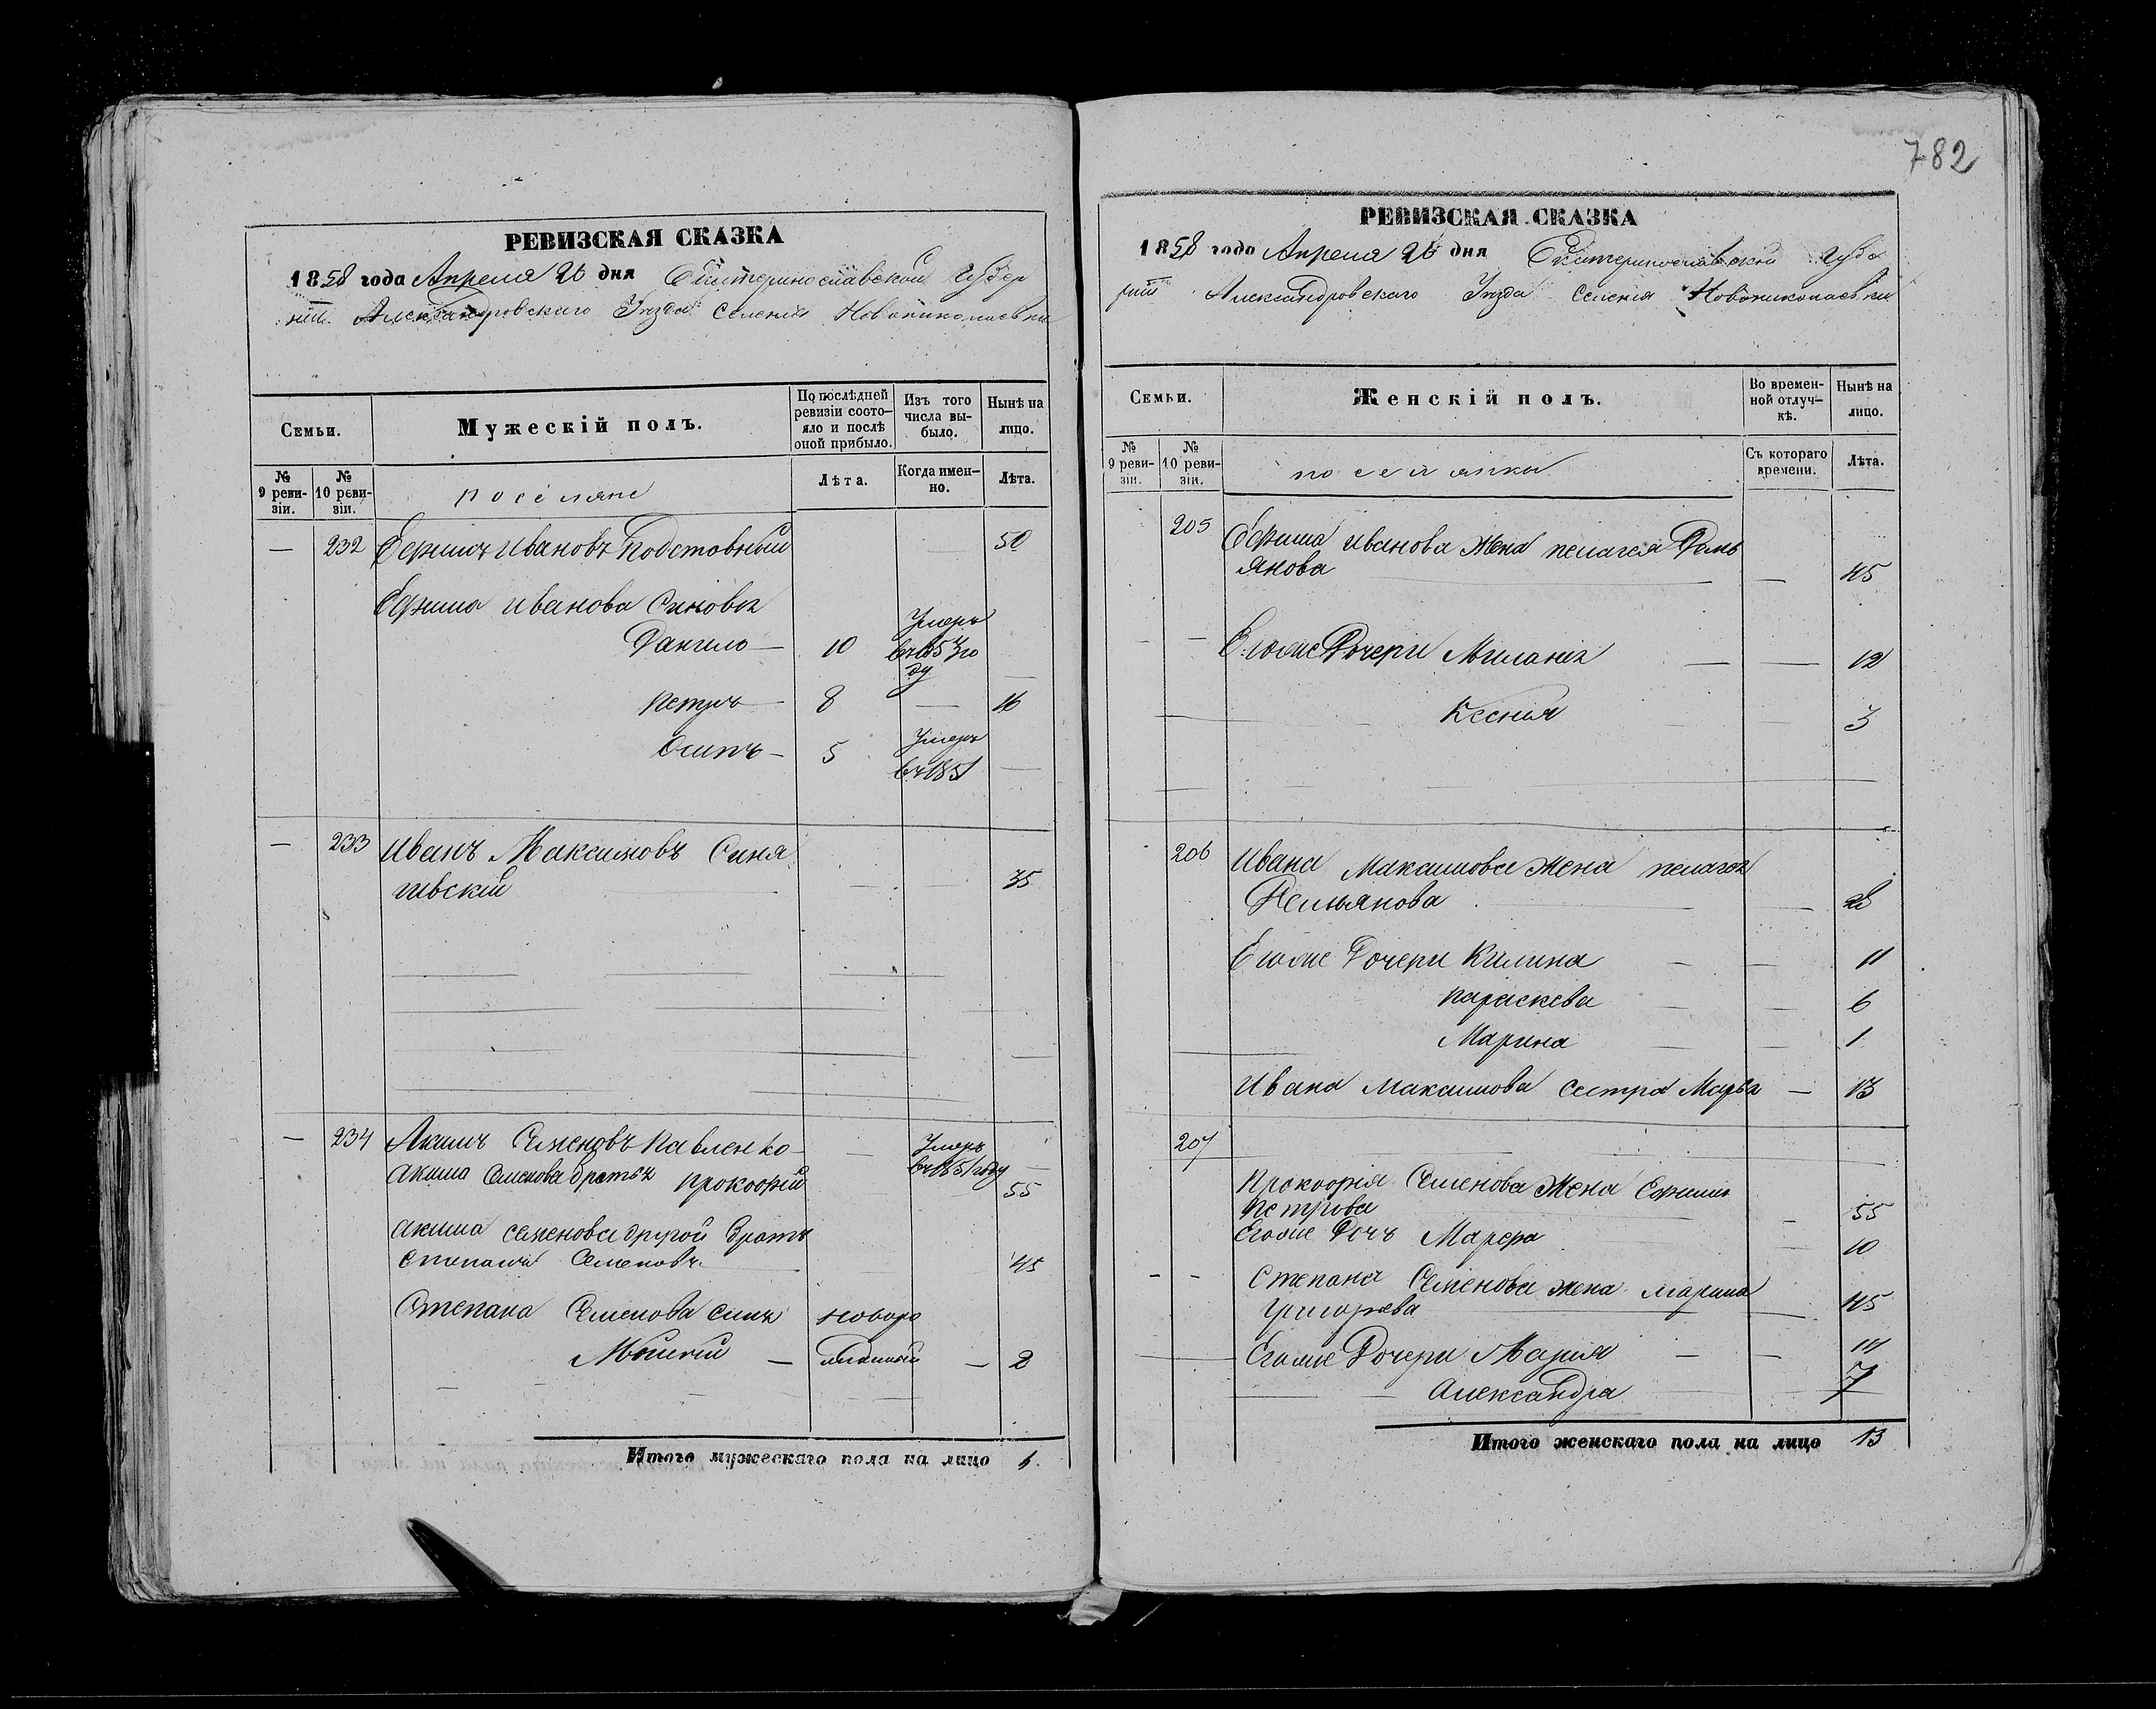 782
РЕВИЗСКАЯ СКАЗКА
1858 года Апреля 26 дня Екатеринославской Губер
ніи Александровскаго Уезда Селенія Новониколаевки
Семьи.
Мужескій полъ.
По послѣдней ревизіи состо-
яло и послѣ
оной прибыло.
Изъ того
числа вы-
было.
Нынѣ на
лицо.
№
9 реви-
зіи.
№
10 реви-
зіи.
поселяне
Лѣта.
Когда имен-
но.
Лѣта.
— 232 Ефимъ Ивановъ 50
Ефима Иванова Синовья
Данило — 10 Умеръ
въ 1853 го
ду
петръ — 8 — 16
Осипъ — 5 Умеръ
въ 1851 —
— 233 Иванъ Максимовъ Синя
гивскій 35
— 234 Акимъ Семеновъ Павленко — Умеръ
въ 1851 году
Акима Семенова братья прокофій 55
Акима Семенова другой братъ
Степанъ Семеновъ 45
Степана Семенова синъ новоро
Моисей — жденный — 2
Итого мужескаго пола на лицо
РЕВИЗСКАЯ СКАЗКА
1858 года Апреля 26 дня Екатеринославской Губе
рніи Александровскаго Уезда Селенія Новониколаевки
Семьи.
Женскій полъ.
Во времен-
ной отлуч-
кѣ.
Нынѣ на
лицо.
№
9 реви-
зіи.
№
10 реви-
зіи.
поселянки
Съ котораго
времени.
Лѣта.
205 Ефима Иванова Жена пелагея Демь
янова — 45
Егоже Дочери Миланія — 12
Ксенія 3
206 Ивана Максимова Жена пелагея
Демьянова —
Егоже Дочери Килина — 11
параскева 6
Марина 1
Ивана Максимова сестра Марѳа — 13
207
Прокофія Семенова Жена Ефимія
Петрова — 55
Егоже Дочь Марфа 10
Степана Семенова жена марина
григорьева 45
Егоже Дочери Марія — 14
Александра 7
Итого женскаго пола на лицо 13